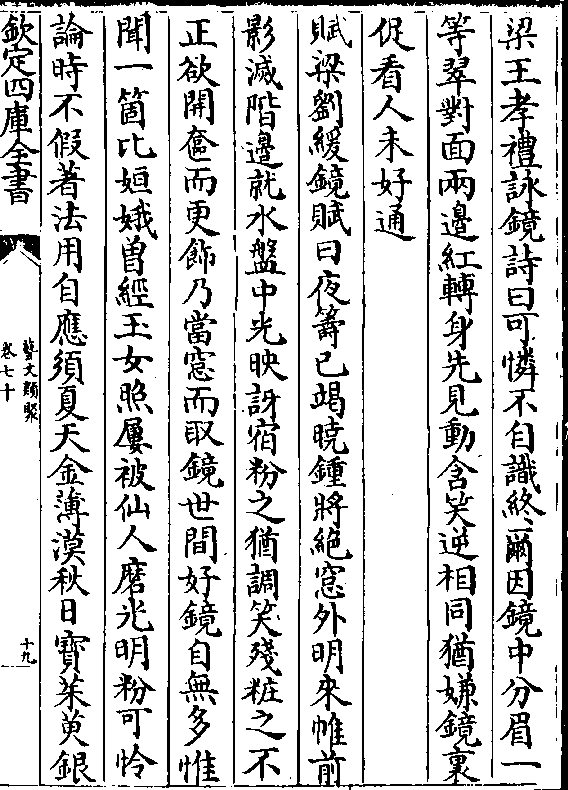 梁王孝禮詠鏡詩曰可憐不自識終爾因鏡中分眉一
等翠對面兩邊紅轉身先見動含笑逆相同猶嫌鏡裏
促看人未好通
賦梁劉緩鏡賦曰夜籌已竭曉鍾將絶窓外明來帷前
影滅階邊就水盤中光映訝宿粉之猶調笑殘粧之不
正欲開奩而更飾乃當窓而取鏡世間好鏡自無多惟
聞一箇比姮娥曽經玉女照屢被仙人磨光明粉可怜
論時不假著法用自應須夏天金薄漠秋日寶茱萸銀
欽定四庫全書
藝文類聚
卷七十
十九